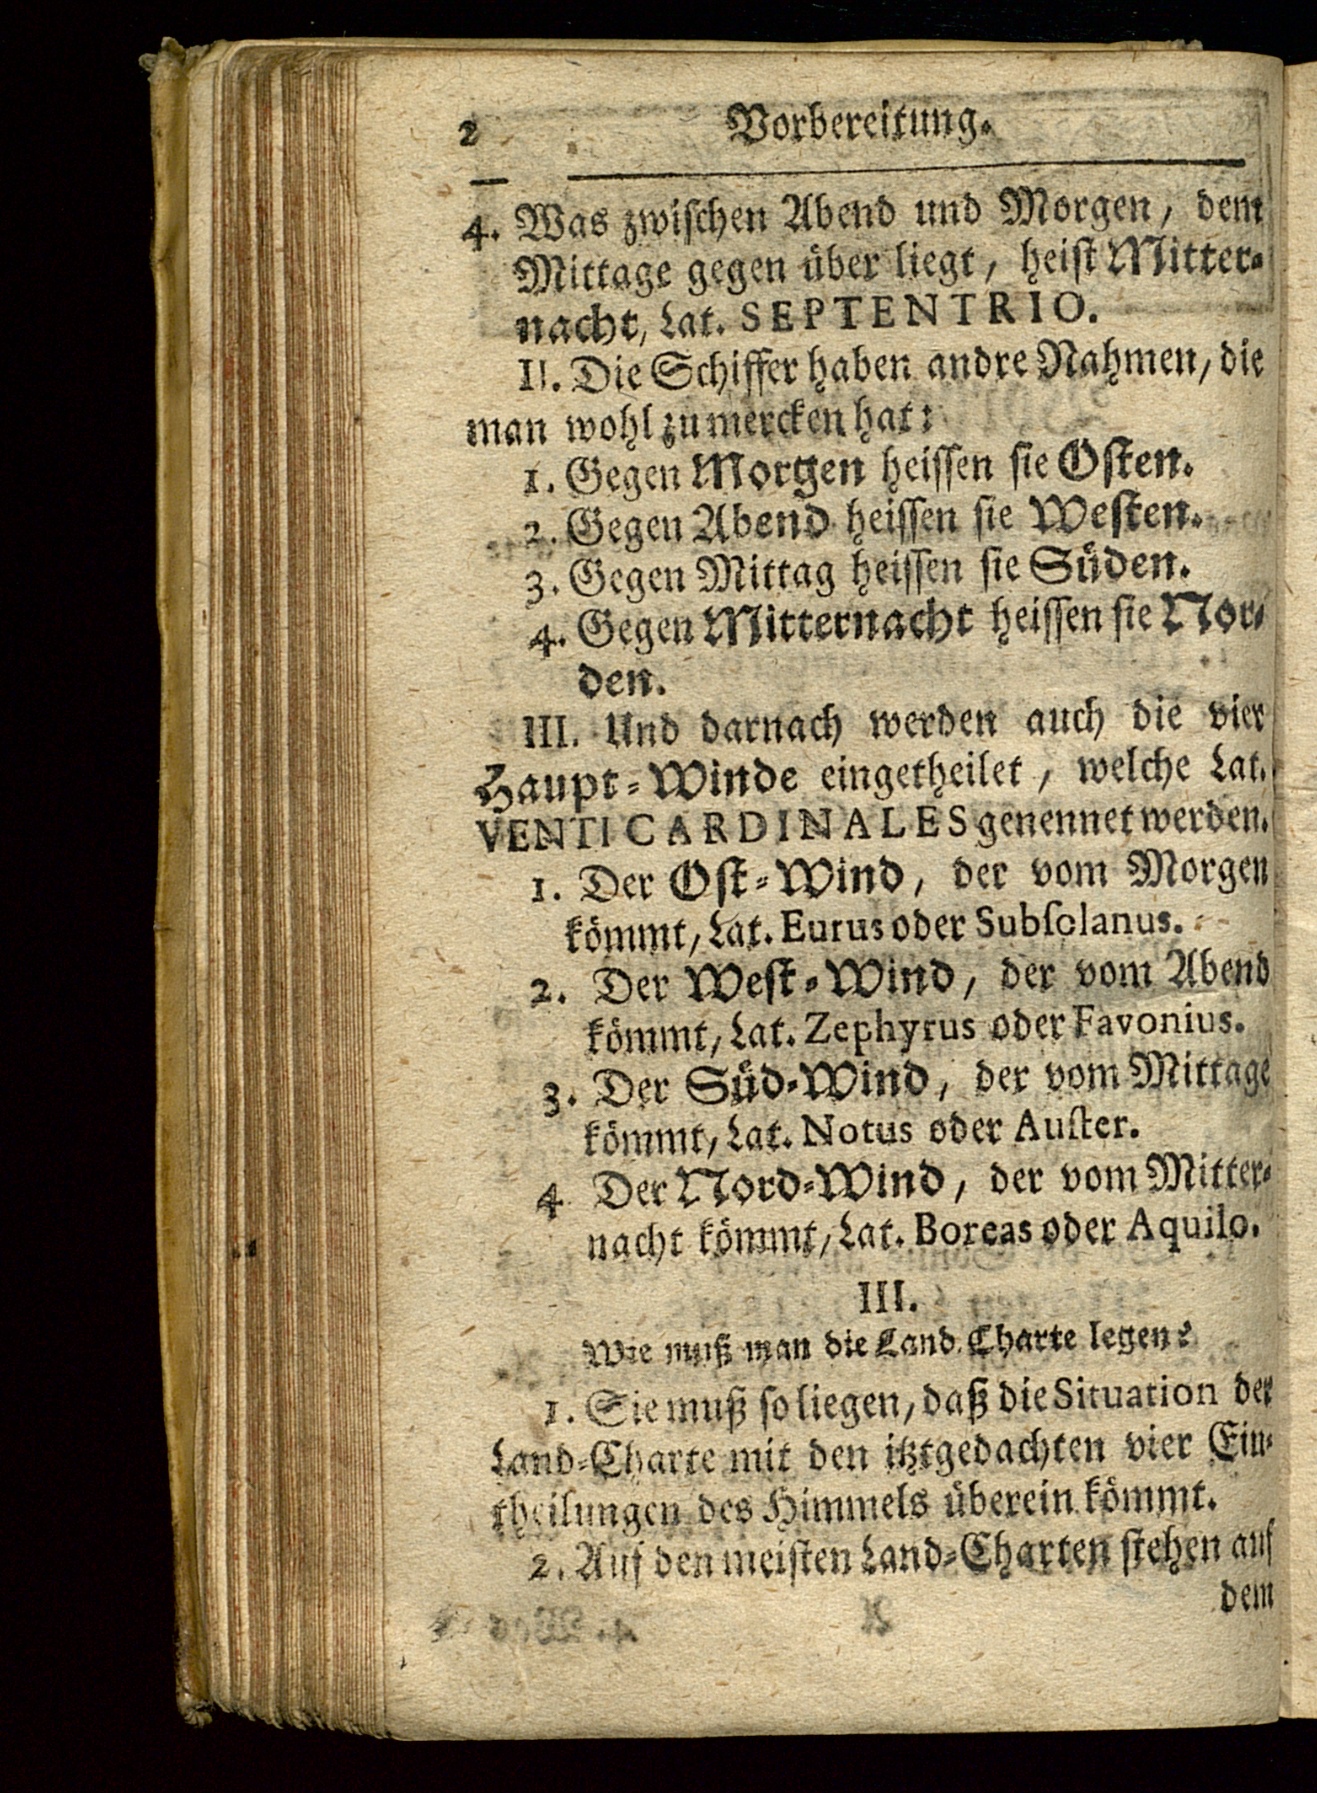 2 Vorbereitung.
4. Was zwiſchen Abend und Morgen, dem
Mittage gegen über liegt, heiſt Mitter-
nacht, Lat. SEPTENTRIO.
II. Die Schiffer haben andre Nahmen, die
man wohl zu mercken hat:
1. Gegen Morgen heiſſen ſie Oſten.
2. Gegen Abend heiſſen ſie Weſten.
3. Gegen Mittag heiſſen ſie Süden.
4. Gegen Mitternacht heiſſen ſie Nor-
den.
III. Und darnach werden auch die vier
Haupt-Winde eingetheilet, welche Lat.
VENTI CARDINALES genennet werden.
1. Der Oſt-Wind, der vom Morgen
kömmt, Lat. Eurus oder Subſolanus.
2. Der Weſt-Wind, der vom Abend
kömmt, Lat. Zephyrus oder Favonius.
3. Der Süd-Wind, der vom Mittage
kömmt, Lat. Notus oder Auſter.
4 Der Nord-Wind, der vom Mitter-
nacht kömmt, Lat. Boreas oder Aquilo.
III.
Wie muß man die Land-Charte legen?
1. Sie muß ſo liegen, daß die Situation der
Land-Charte mit den itztgedachten vier Ein-
theilungen des Himmels überein kömmt.
2. Auf den meiſten Land-Charten ſtehen auf
dem